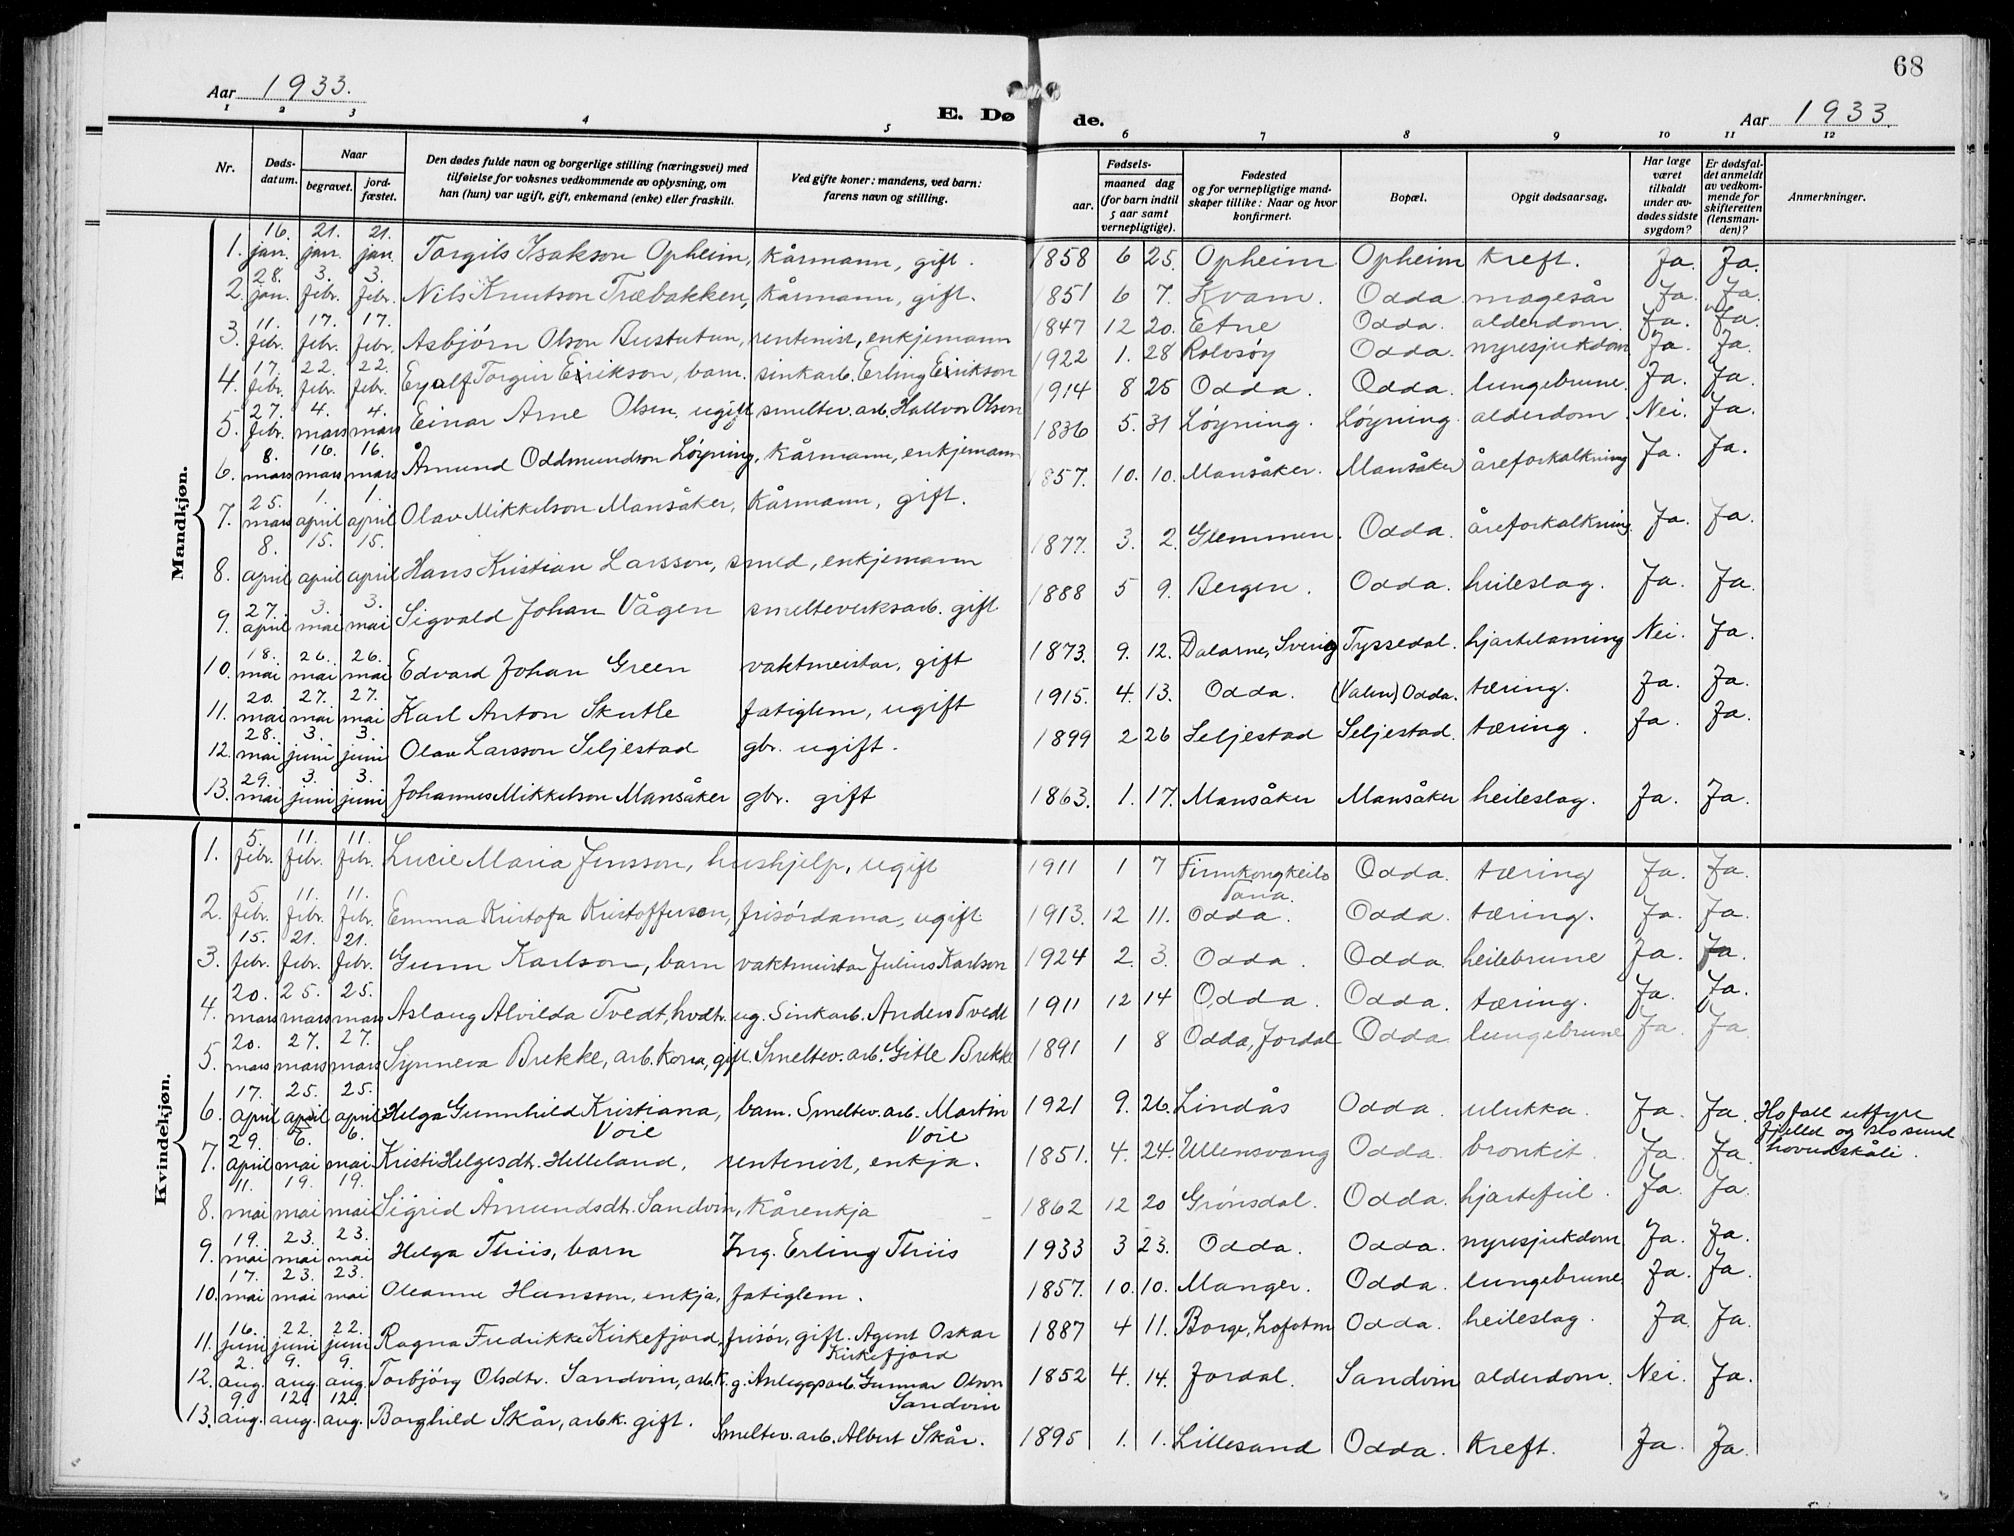 68
Aar 1933. E. Dø de. Aar 1933.
1 2 3 4 5 6 7 8 9 10 11 12
Nr. Døds-datum. Naar begravet. jord-fæstet. Den dødes fulde navn og borgerlige stilling (næringsvei) med tilføielse for voksnes vedkommende av oplysning, om han (hun) var ugift, gift, enkemand (enke) eller fraskilt. Ved gifte koner: mandens, ved barn: farens navn og stilling. Fødsels- aar. maaned dag (for barn indtil 5 aar samt vernepligtige). Fødested og for vernepligtige mand-skaper tillike: Naar og hvor konfirmert. Bopæl. Opgit dødsaarsag. Har læge været tilkaldt under av-dødes sidste sygdom? Er dødsfal-det anmeldt av vedkom-mende for skifteretten (lensman-den)? Anmerkninger.
Mandkjøn.
1. 16. jan. 21. jan. 21. jan. Torgils Isakson Opheim, kårmann, gift. 1858 6 25. Opheim Opheim kreft. Ja. Ja.
2. 28. jan. 3. febr. 3. febr. Nils Knutson Træbakken, kårmann, gift. 1851 6 7. Kvam. Odda. magesår Ja. Ja.
3. 11. febr. 17. febr. 17. febr. Asbjörn Olson Bustetun, rentenist, enkjemann 1847 12 20. Etne Odda. alderdom. Ja. Ja.
4. 17. febr. 22. febr. 22. febr. Eyalf Torgin Eirikson, barn. sinkarb. Erling Eirikson 1922 1. 28 Rolvsøy Odda. nyresjukdom Ja. Ja.
5. 27. febr. 4. mars 4. mars Einar Arne Olsen, ugift smeltev. arb. Hallvor Olson 1914 8 25 Odda. Odda. lungebrune. Ja. Ja.
6. 8. mars 16. mars 16. mars Åmund Oddmundson Løyning, kårmann, enkjemann 1836 5. 31 Løyning. Løyning. alderdom. Nei. Ja.
7. 25. mars 1. april 1. april Olav Mikkelson Mansåker, kårmann, gift. 1857. 10. 10. Mansåker. Mansåker åreforkalkning Ja. Ja.
8. 8. april 15. april 15. april Hans Kristian Larsson, smed, enkjemann 1877. 3. 2. Glemmen. Odda. åreforkalkning. Ja. Ja.
9. 27. april 3. mai 3. mai Sigvald Johan Vågen smelteverksarb. gift 1888 5 9. Bergen. Odda. heileslag. Ja. Ja.
10. 18. mai 26. mai 26. mai Edvard Johan Green vaktmeistar, gift 1873. 9. 12. Dalarne, Sverig Tyssedal. hjartelaming Nei. Ja.
11. 20. mai 27. mai 27. mai Karl Anton Skutle fatiglem, ugift 1915. 4. 13. Odda. (Valen) Odda. tæring. Ja. Ja.
12. 28. mai 3. juni 3. juni Olav Larsson Seljestad gbr. ugift. 1899 2 26 Seljestad Seljestad. tæring. Ja. Ja.
13. 29. mai 3. juni 3. juni Johannes Mikkelson Mansåker gbr. gift 1863. 1. 17. Mansåker Mansåker heileslag. Ja. Ja.
Kvindekjøn.
1. 5. febr. 11. febr. 11. febr. Lucie Maria Jensson, hushjelp, ugift 1911 1 7 Finnkongkeilo Tana. Odda. tæring Ja. Ja.
2. 5. febr. 11. febr. 11. febr. Emma Kristofa Kristofferson, frisördama, ugift 1913. 12 11. Odda. Odda. tæring. Ja. Ja.
3. 15. febr. 21. febr. 21. febr. Gunn Karlson, barn vaktmeistar Julius Karlson 1924 2. 3. Odda. Odda. heilebrune Ja. Ja.
4. 20. mars 25. mars 25. mars Aslaug Alvilda Tvedt, hvdtr. ug. Sinkarb. Anders Tvedt 1911 12 14 Odda. Odda. tæring. Ja. Ja.
5. 20. mars 27. mars 27. mars Synneva Brekke, arb. kona, gift. Smeltev. arb. Gitle Brekke 1891 1 8 Odda, Jordal Odda lungebrune Ja. Ja
6. 17. april 25. april 25. april Helga Gunnhild Kristiana Voie, barn. Smeltev. arb. Martin Voie 1921 9. 26. Lindås Odda. ulukka. Ja. Ja. Ho fall utfyre fjelld og slo sund hovudskåli.
7. 29. april 6. mai 6. mai Kristi Helgesdt. Helleland, rentenist, enkja. 1851. 4. 24. Ullensvang Odda. bronkit. Ja. Ja.
8. 11. mai 19. mai 19. mai Sigrid Åmundsdt. Sandvin, kårenkja 1862 12 20 Grönsdal. Odda. hjartefeil. Ja. Ja.
9. 19. mai 23. mai 23. mai Helga Thiis, barn Ing. Erling Thiis 1933 3 23. Odda. Odda. nyresjukdom Ja. Ja.
10. 17. mai 23. mai 23. mai Oleanne Hansson, enkja, fatiglem. 1857. 10. 10. Manger. Odda. lungebrune Ja. Ja.
11. 16. juni 22. juni 22. juni Ragna Fredrikke Kirkefjord, frisør, gift. Agent Oskar Kirkefjord 1887 4 11. Borge, Lofoten Odda. heileslag. Ja. Ja.
12. 2. aug. 9. aug. 9. aug. Torbjörg Olsdtr. Sandvin, arb.k. g. Anleggsarb. Gunnar Olson Sandvin 1852 4. 14. Jordal. Sandvin alderdom. Nei. Ja.
13. 9. aug. 12. aug. 12. aug. Borghild Skår, arb.k. gift. Smeltev. arb. Albert Skår. 1895 1. 1. Lillesand Odda. kreft. Ja. Ja.